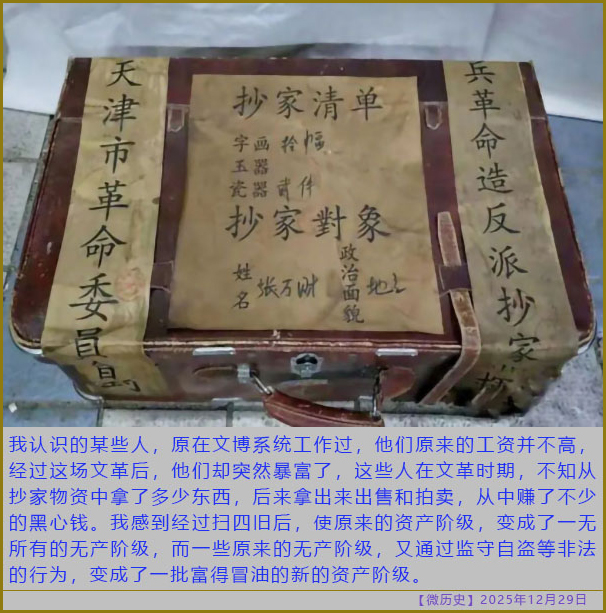 天津市革命委員
兵革命造反派抄家
抄家清单
字画 拾幅
玉器
瓷器 贰件
抄家對象
姓名 张万财 政治面貌 地主
我认识的某些人，原在文博系统工作过，他们原来的工资并不高，
经过这场文革后，他们却突然暴富了，这些人在文革时期，不知从
抄家物资中拿了多少东西，后来拿出来出售和拍卖，从中赚了不少
的黑心钱。我感到经过扫四旧后，使原来的资产阶级，变成了一无
所有的无产阶级，而一些原来的无产阶级，又通过监守自盗等非法
的行为，变成了一批富得冒油的新的资产阶级。
【微历史】2025年12月29日